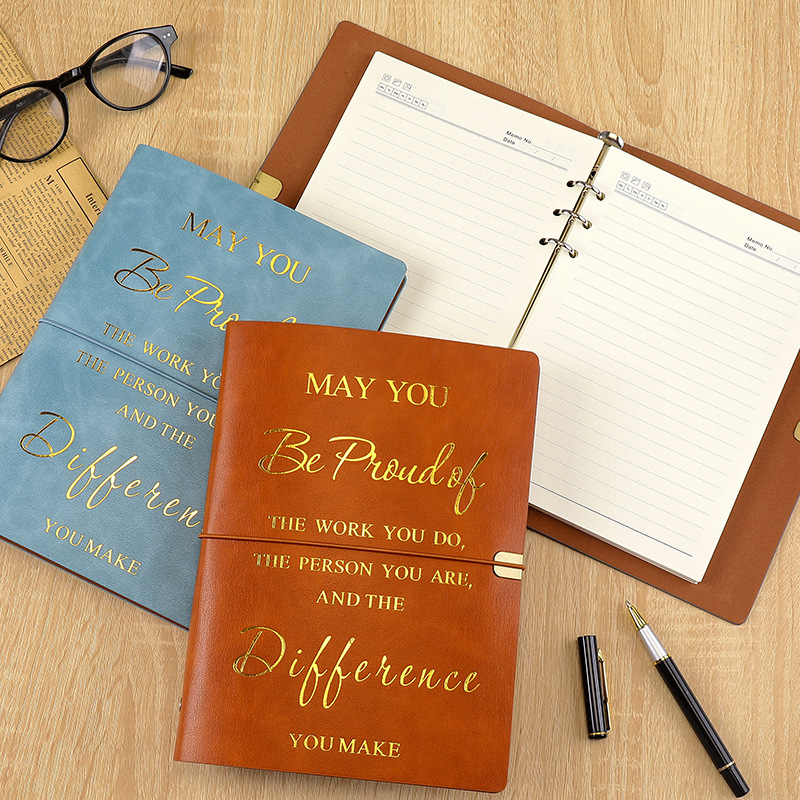 MAY YOU
Be Proud of
THE WORK YOU DO,
THE PERSON YOU ARE,
AND THE
Difference
YOU MAKE
MAY YOU
Be
THE WORK
THE PERSON
AND THE
YOU MAKE
Memo No.
Date / /
Memo No.
Date